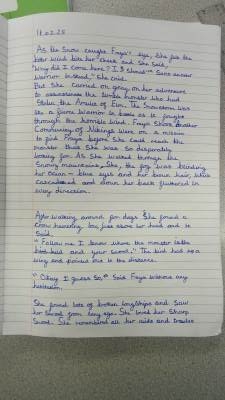 11.02.25
As the Snow caught Freya's eye, She felt the
bitter wind bite her cheek and she Said,
"Why did I come here? I should
warrior instead," She cried.
But She carried on going on her adventure
to assassinate the monster who had
Stolen the Amulet of Fire. The Snowstorm was
like a fierce warrior to her as it fought
through the horrible wind. Freya
Community of Vikings were on a mission
to find Freya before She could reach the
monster that She was So desperately
looking for. As She walked through the
Snowy mountains, She, the fog was blinding
her ocean-blue eyes and her brown hair, which
cascaded and down her back fluttered in
every direction.
After walking around for days She found a
Crow hovering low just above her head and it
Said,
"Follow me I know where the monster
held and your Sword." The bird had
wing and pointed one to the distance.
"Okay I guess So," Said Freya without any
hesitation.
She found lots of broken longships and Saw
her Sword from long ago. She loved her Sharp
Sword. She remembered all her raids and